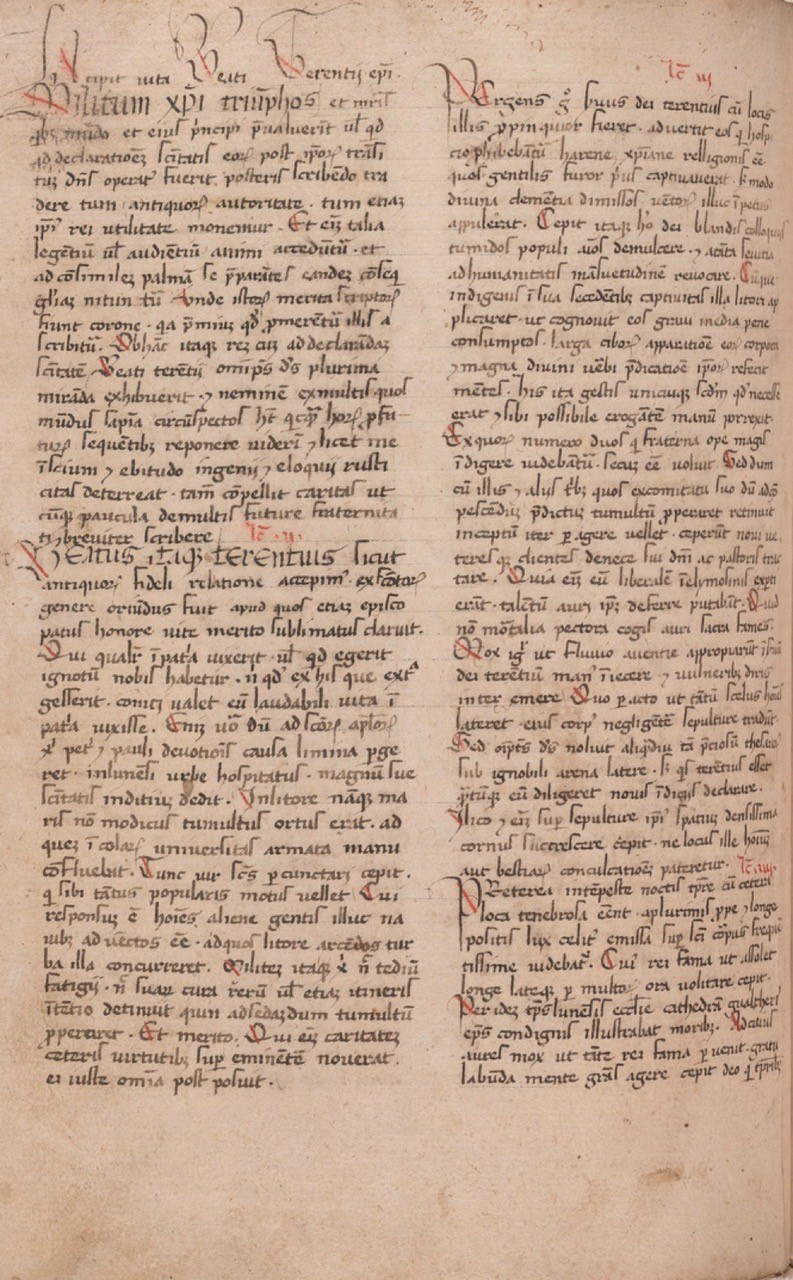 Incipit uita Beati Terentij epi.
Militum xpi triumphos et miris
mundo et eius pncipi pualuerit ul qd
ad declaratioez scitatis eorꝝ post ipsorꝝ trasi
tuz dns operat fuerit. posteris scribedo tra
dere tum antiquorꝝ autoritate. tum etiaz
ipsi rei utilitate monemur. Et eiz talia
legetiu ul audietiu animi accedutu. et
ad cosimilez palma se pparates easdez
glias nitun tu Unde istorꝝ merita scriptorꝝ
fiunt corone. qa pmiuz qd pmeretu illis a
scribitu. Obhac itaqꝫ rez ad declaradaz
scitate Beati teretij omips ds plurima
mirada exhibuerit. ⁊ nemine ex multis quos
mudus sapia circuspectos
turꝝ sequetibꝫ reponere uideri ⁊ licet me
iscium ⁊ ebitudo ingenij ⁊ eloquij rusti
citas deterreat. tam copellit caritas ut
paucula de multis future fraternita
ti breuiter scribere
Beatus itaqꝫ terentius sicut
antiquorꝝ fideli relatione accepim. ex scotorꝝ
genere oriudus fuit apud quos etiaz episco
patus honore uite merito sublimatus claruit.
Qui qualr i pata uixerit. ul qd egerit
ignotu nobis habetur. n qd ex his que exta
gesserit. conici ualet eu laudabili uita i
pata uixisse. Cuz uo du ad scorꝝ aplorꝝ
petⁱ ⁊ pauli deuotiois causa limina pge
ret. in lunesi urbe hospitatus. magnu sue
scitatis inditiuz dedit. In litore naqꝫ ma
ris no modicus tumultus ortus erat. ad
quez i colarꝝ uniuersitas armata manu
cofluebat. Tunc uir scs pcunctari cepit.
q sibi tatus popularis motus uellet. Cui
responsuz e hoies aliene gentis illuc na
uibꝫ aduectos ee. ad quos litore arcedos tur
ba illa concurreret. Milites itaqꝫ x n tediu
fatigij. n suarꝝ cura reru ul etiaz itineris
itetio detinuit quin ad sedaz dum tumultu
pperaret. Et merito. Qui eiz caritatez
ceteris uirtutibꝫ sup eminete nouerat.
ei iuste omia post posuit.
Pergens g huius dei terentius cu locis
illis ppinquior fieret. aduertit eos q hosp
cio phibebatu harene xpiane relligionis ee.
quos gentilis furor pus captiuauerat. s modo
diuina clemetia dimissos uetorꝝ illuc ipetus
appulerat. Cepit itaqꝫ ho dei blandis colloquiis
tumidos populi aios demulcere. ⁊ seuitia
ad humanitatis masuetudine reuocare. Cuqꝫ
indigenis i sua secedetibꝫ captiuitas illa litori ap
plicaret. ut cognouit eos graui media pene
consumptos. larga ciborꝝ apparatioe eorꝝ corpora
⁊ magna diuini uerbi pdicatioe iporꝝ refecit
metes. his ita gestis unicuiqꝫ scdm qd necesse
erat ⁊ sibi possibile erogate manu porrexit.
Ex quorꝝ numero duos q fraterna ope magis
idigere uidebatu. secuz ee uoluit. Sed dum
cu illis ⁊ alijs tbꝫ quos excomitatu suo du
pescediz pdictus tumultu pperaret retinuit
inceptu iter pagere uellet. ceperut noui ue
teres qꝫ clientes de nece sui dni ac pastoris trac
tare. Quia eiz eu liberale i elymosinis experti
erat. taletu auri ipz deferre putabat. Quid
no mortalia pectora cogis auri sacra fames.
Mox igⁱ ut fluuio auentie appropiarut isau
dei teretiu man iiecere ⁊ uulneribꝫ diris
interemere. Quo pacto ut tatu scelus
lateret. eius corp negligete sepulture tradut.
Sed oips ds noluit aliqdiu ta pciosu thesauru
sub ignobili arena latere. s qs teretius esset
qtuqꝫ eu diligeret nouis idicijs declarare.
Ilico ⁊ eiz sup sepulture ipi spatiuz densissima
cornus succrescere cepit. ne locus ille hoiuz
aut bestiarꝝ conculcatioez pateretur.
Preterea intepeste noctis tpre cu cetera
loca tenebrosa eent. a plurimis ppe ⁊ longe
positis lux celit emissa sup sci corpus freque
tissime uidebat. Cui rei fama ut assolet
longe lateqꝫ p multorꝝ ora uolitare cepit.
Per idez tps lunesis ecclie cathedra gualtherius
eps condignis illustrabat moribꝫ. Ad cuius
aures mox ut tate rei fama puenit. gratu
labuda mente gras agere cepit deo q tpribꝫ